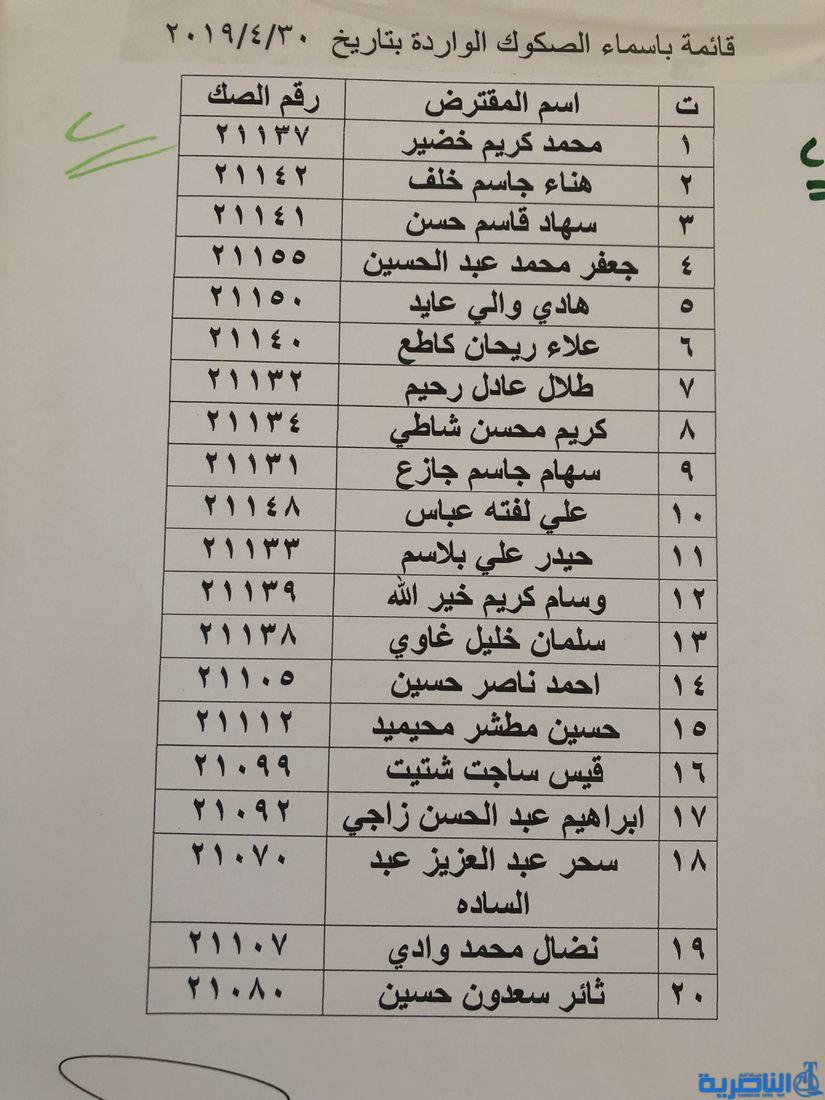 قائمة باسماء الصكوك الواردة بتاريخ ٢٠١٩/٤/٣٠
ت اسم المقترض رقم الصك
١ محمد كريم خضير ٢١١٣٧
٢ هناء جاسم خلف ٢١١٤٢
٣ سهاد قاسم حسن ٢١١٤١
٤ جعفر محمد عبد الحسين ٢١١٥٥
٥ هادي والي عايد ٢١١٥٠
٦ علاء ريحان كاطع ٢١١٤٠
٧ طلال عادل رحيم ٢١١٣٢
٨ كريم محسن شاطي ٢١١٣٤
٩ سهام جاسم جازع ٢١١٣١
١٠ علي لفته عباس ٢١١٤٨
١١ حيدر علي بلاسم ٢١١٣٣
١٢ وسام كريم خير الله ٢١١٣٩
١٣ سلمان خليل غاوي ٢١١٣٨
١٤ احمد ناصر حسين ٢١١٠٥
١٥ حسين مطشر محيميد ٢١١١٢
١٦ قيس ساجت شتيت ٢١٠٩٩
١٧ ابراهيم عبد الحسن زاجي ٢١٠٩٢
١٨ سحر عبد العزيز عبد ٢١٠٧٠
الساده
١٩ نضال محمد وادي ٢١١٠٧
٢٠ ثائر سعدون حسين ٢١٠٨٠
الناصرية